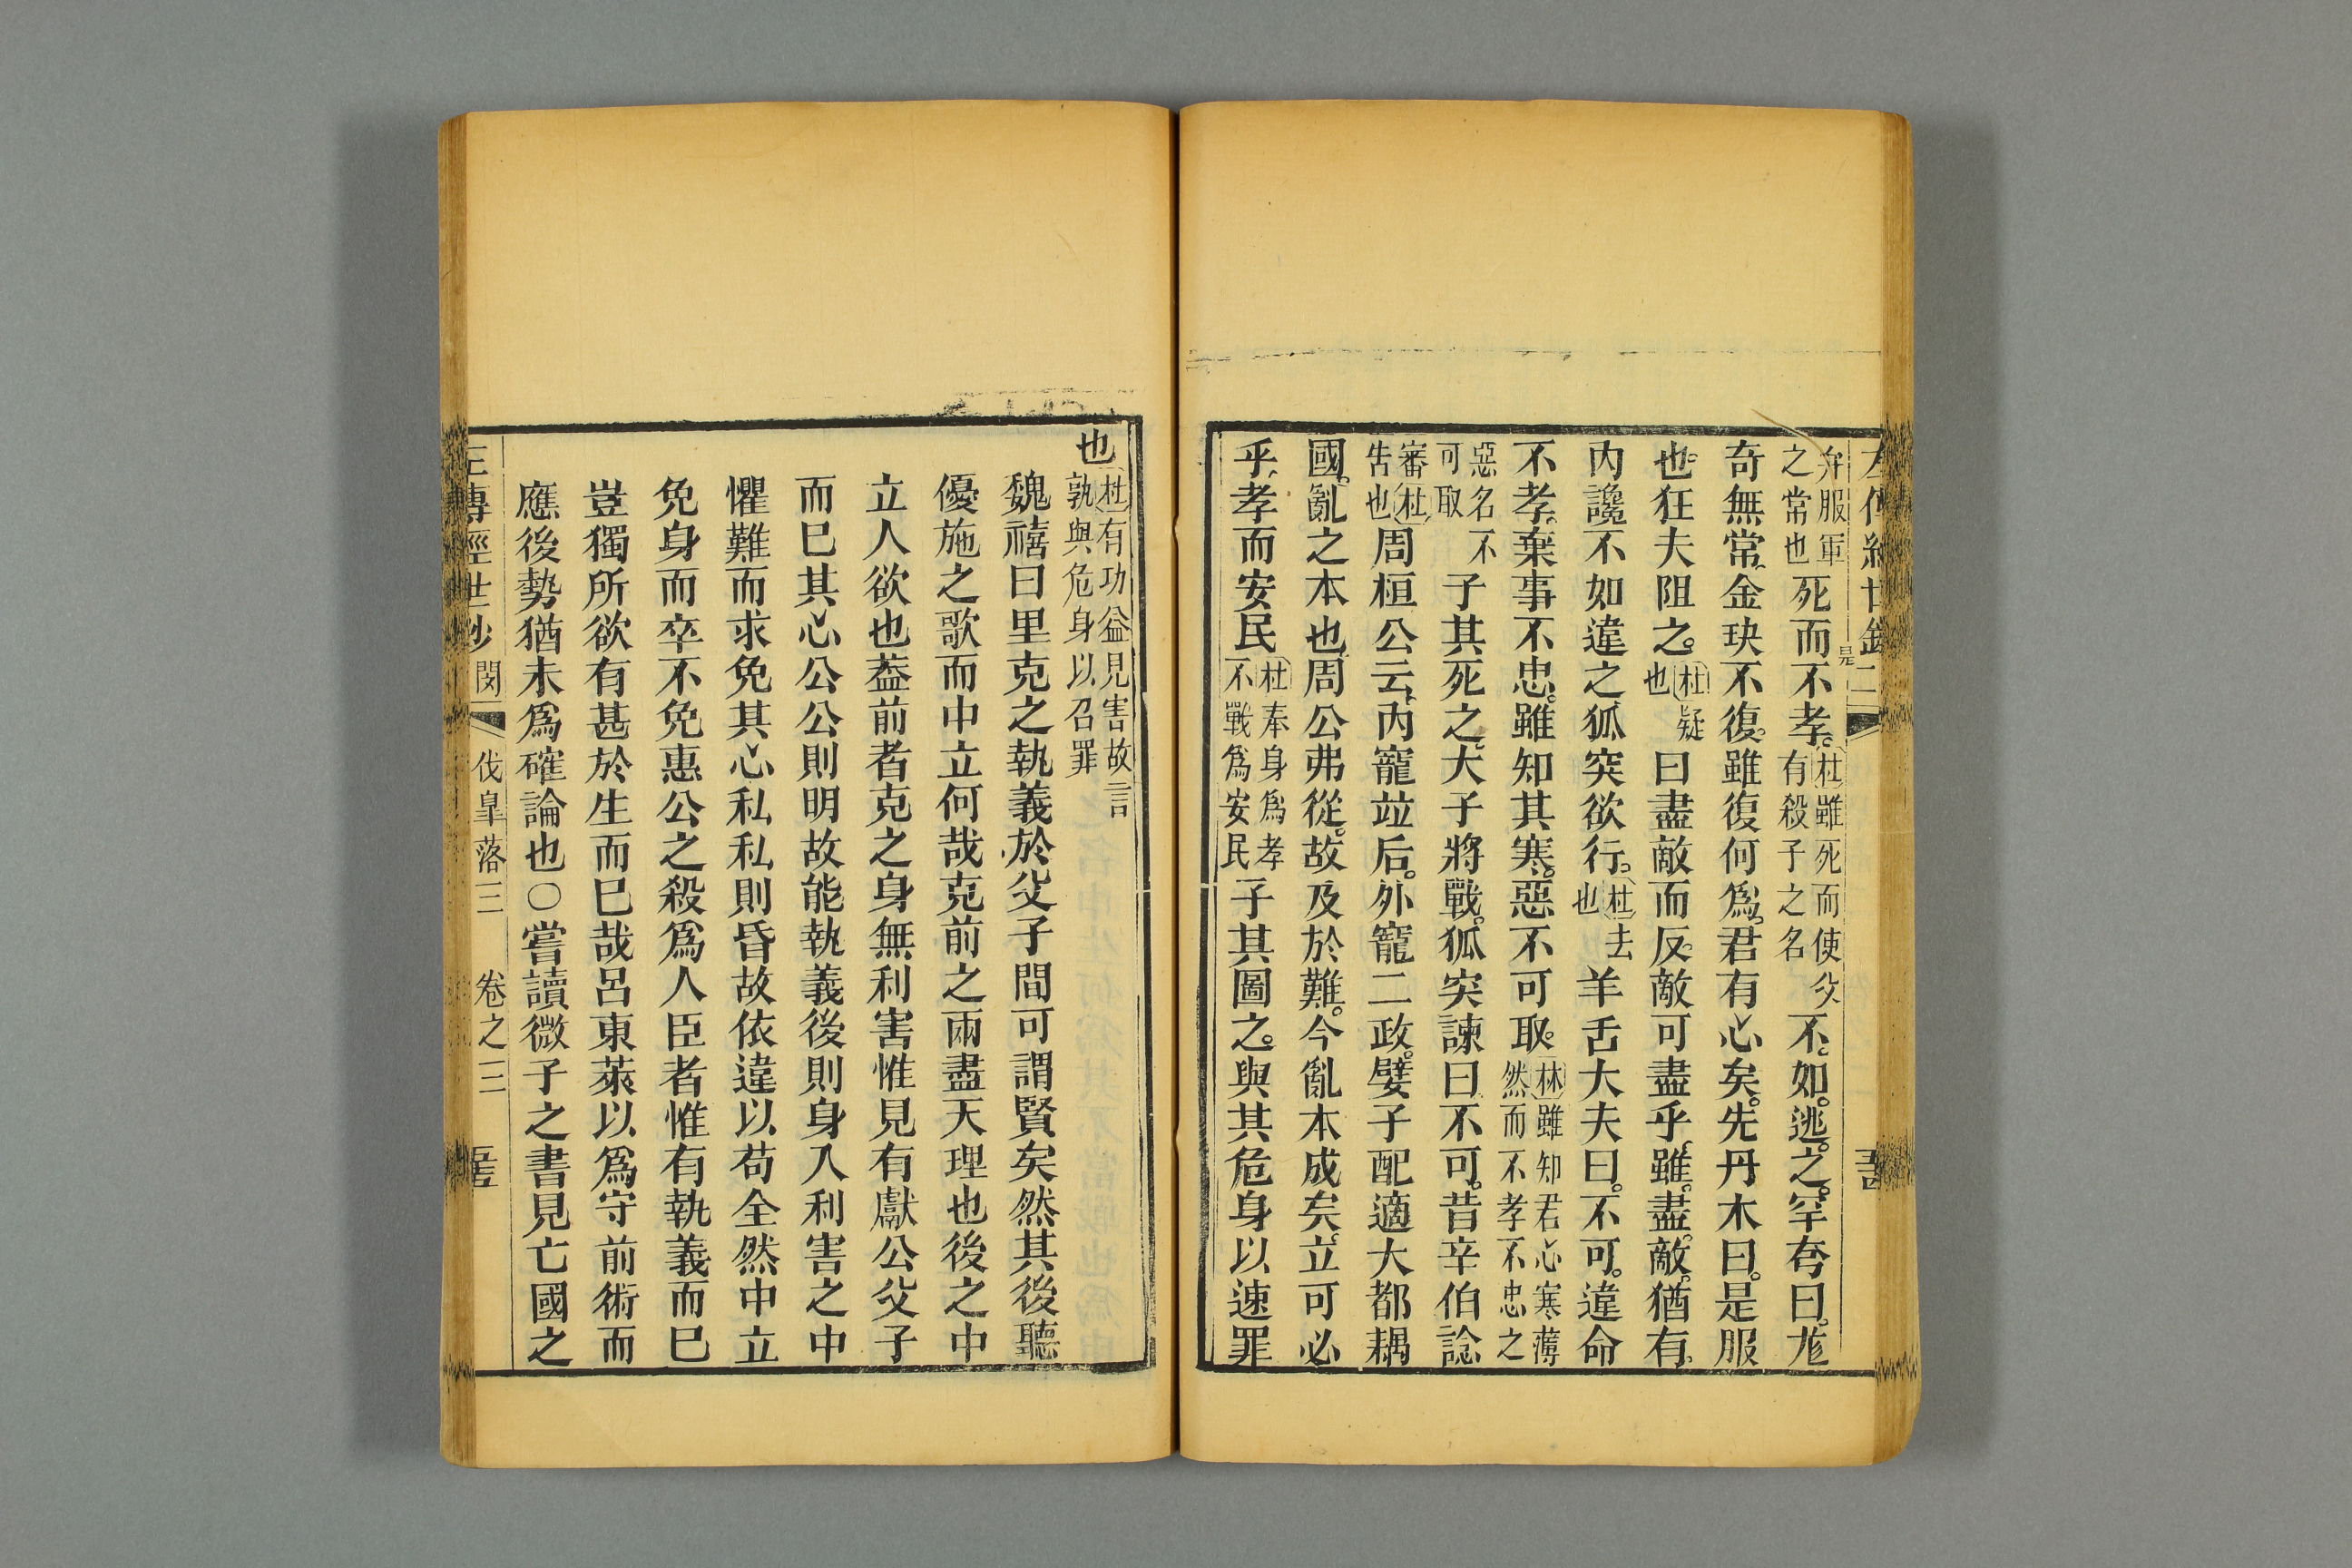 弁服軍之常也死而不孝杜雖死而使父有殺子之名不如逃之罕夸曰尨
奇無常金玦不復雖復何爲君有心矣先丹木曰是服
也狂夫阻之杜疑也曰盡敵而反敵可盡乎雖盡敵猶有
內讒不如違之狐突欲行杜去也羊舌大夫曰不可違命
不孝棄事不忠雖知其寒惡不可取林雖知君心寒薄然而不孝不忠之
惡名不可取子其死之大子將戰狐突諫曰不可昔辛伯諗
審杜告也周桓公云內寵竝后外寵二政嬖子配適大都耦
國亂之本也周公弗從故及於難今亂本成矣立可必
乎孝而安民杜奉身爲孝不戰爲安民子其圖之與其危身以速罪
也杜有功益見害故言孰與危身以召罪
魏禧曰里克之執義於父子間可謂賢矣然其後聽
優施之歌而中立何哉克前之兩盡天理也後之中
立人欲也葢前者克之身無利害惟見有獻公父子
而巳其心公公則明故能執義後則身入利害之中
懼難而求免其心私私則昏故依違以苟全然中立
免身而卒不免惠公之殺爲人臣者惟有執義而巳
豈獨所欲有甚於生而巳哉呂東萊以爲守前術而
應後勢猶未爲確論也○嘗讀微子之書見亡國之
傳經世鈔 閔 伐臯落三 卷之三